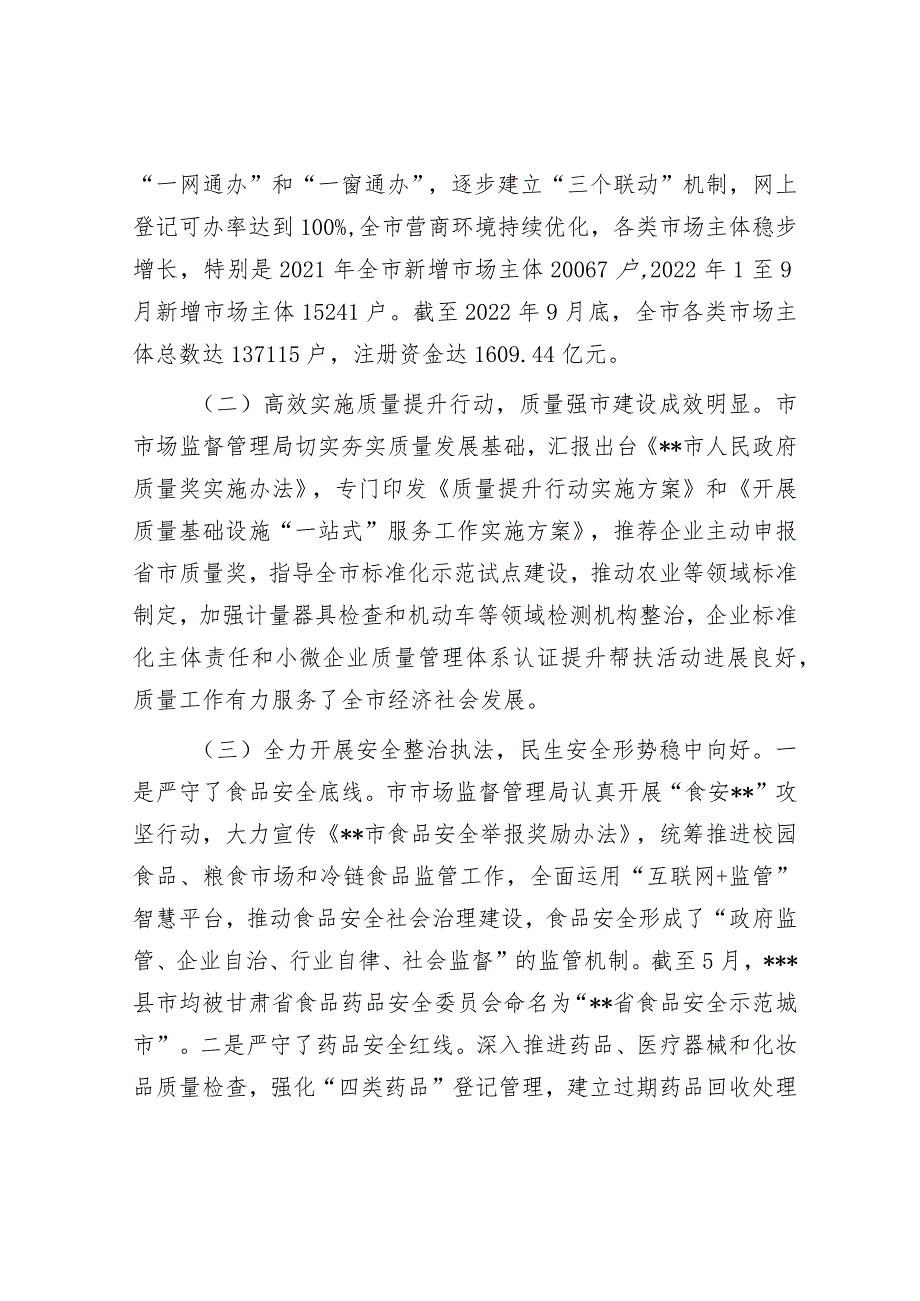 “一网通办”和“一窗通办”，逐步建立“三个联动”机制，网上
登记可办率达到100%,全市营商环境持续优化，各类市场主体稳步
增长，特别是2021年全市新增市场主体20067户,2022年1至9
月新增市场主体15241户。截至2022年9月底，全市各类市场主
体总数达137115户，注册资金达1609.44亿元。
（二）高效实施质量提升行动，质量强市建设成效明显。市
市场监督管理局切实夯实质量发展基础，汇报出台《**市人民政府
质量奖实施办法》，专门印发《质量提升行动实施方案》和《开展
质量基础设施“一站式”服务工作实施方案》，推荐企业主动申报
省市质量奖，指导全市标准化示范试点建设，推动农业等领域标准
制定，加强计量器具检查和机动车等领域检测机构整治，企业标准
化主体责任和小微企业质量管理体系认证提升帮扶活动进展良好，
质量工作有力服务了全市经济社会发展。
（三）全力开展安全整治执法，民生安全形势稳中向好。一
是严守了食品安全底线。市市场监督管理局认真开展“食安**”攻
坚行动，大力宣传《**市食品安全举报奖励办法》，统筹推进校园
食品、粮食市场和冷链食品监管工作，全面运用“互联网+监管”
智慧平台，推动食品安全社会治理建设，食品安全形成了“政府监
管、企业自治、行业自律、社会监督”的监管机制。截至5月，***
县市均被甘肃省食品药品安全委员会命名为“**省食品安全示范城
市”。二是严守了药品安全红线。深入推进药品、医疗器械和化妆
品质量检查，强化“四类药品”登记管理，建立过期药品回收处理